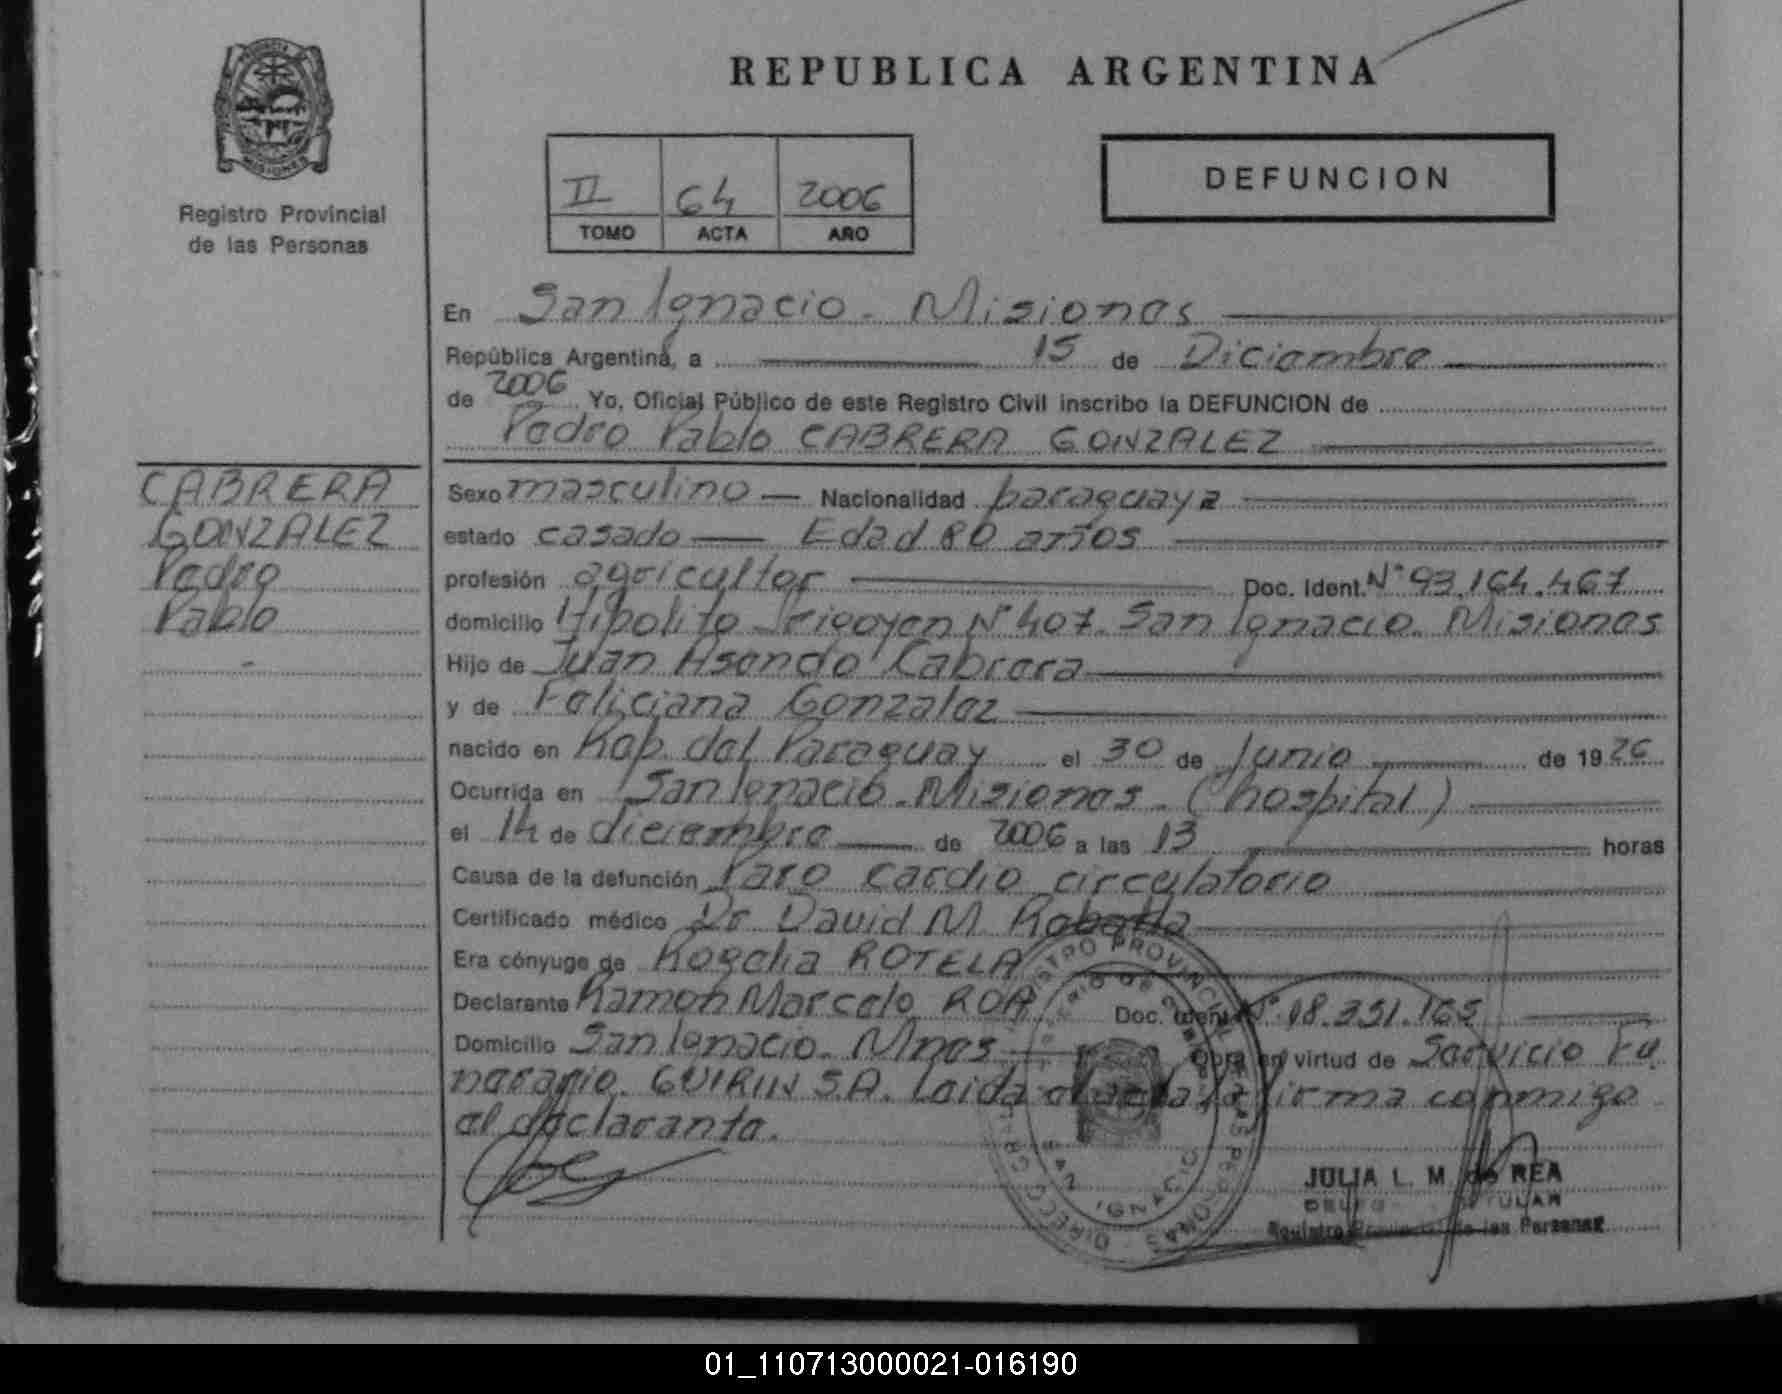 PROVINCIA DE
MISIONES
Registro Provincial
de las Personas
REPUBLICA ARGENTINA
II 64 2006
TOMO ACTA AÑO
DEFUNCION
En San Ignacio - Misiones
República Argentina, a 15 de Diciembre
de 2006 Yo, Oficial Público de este Registro Civil inscribo la DEFUNCION de
Pedro Pablo CABRERA GONZALEZ
CABRERA
GONZALEZ
Pedro
Pablo
Sexo masculino Nacionalidad paraguaya
estado casado Edad 80 años
profesión agricultor Doc. Ident. Nº 93.164.467
domicilio Hipolito Irigoyen Nº 407. San Ignacio. Misiones
Hijo de Juan Asencio Cabrera
y de Feliciana Gonzalez
nacido en Rep. del Paraguay el 30 de Junio de 1926
Ocurrida en San Ignacio - Misiones - (hospital)
el 14 de diciembre de 2006 a las 13 horas
Causa de la defunción Paro cardio circulatorio
Certificado médico Dr David M.
Era cónyuge de Rogelia ROTELA
Declarante Ramon Marcelo ROA Doc. Ident. Nº 18.351.165
Domicilio San Ignacio - Mnes Obra en virtud de Servicio Fu
nerario. GUIRIN S.A. Leida el acta la firma conmigo
el declarante.
JULIA L. M. de REA
TITULAR
Registro Provincial de las Personas
01_110713000021-016190